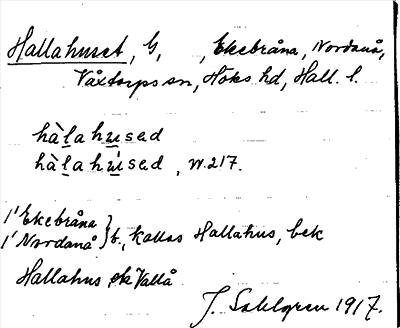 Hallahuset, G, , Ekebråna, Nordanå,
Våxtorps sn, Höks hd, Hall. l.
hàlahused
hàlahúsed, W.217.
1' Ekebråna
1' Nordanå } b., kallas Hallahus, bek
Hallahus Vallå
J. Sahlgren 1917.